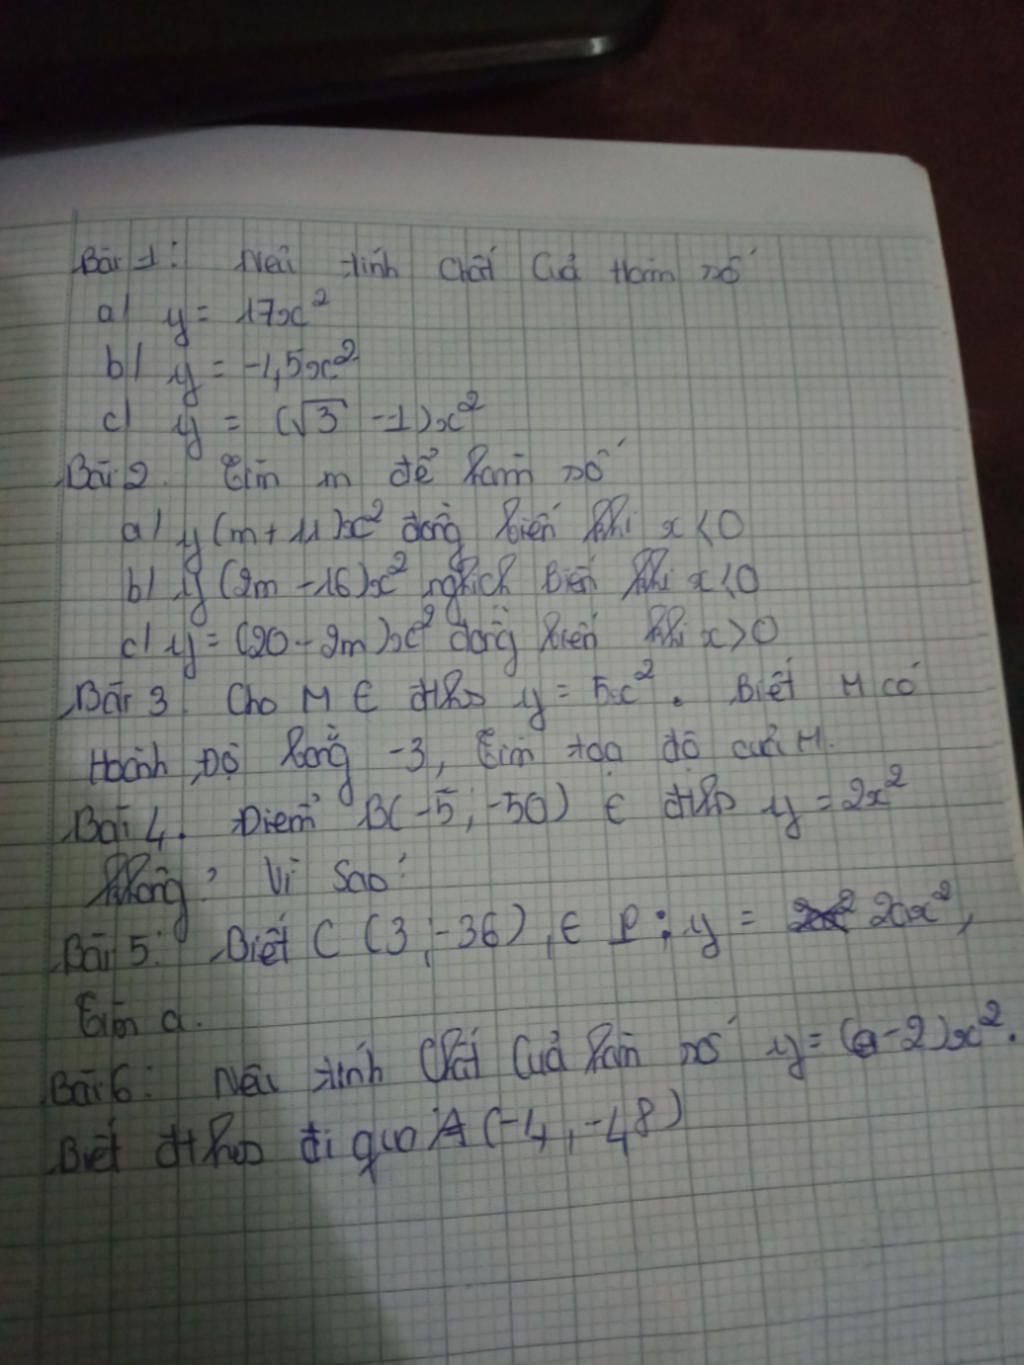 Bài 1: Nêu tính chất của hàm số
a/ y = 17x²
b/ y = -1,5x²
c/ y = (√3 - 1)x²
Bài 2. Tìm m để hàm số
a/ y(m + 11)x² đồng biến khi x < 0
b/ y(2m - 16)x² nghịch biến khi x < 0
c/ y = (20 - 2m)x² đồng biến khi x > 0
Bài 3. Cho M ∈ đths y = 5x². Biết M có
Hoành Độ bằng -3, Tìm tọa độ của M.
Bài 4. Điểm B(-5; -50) ∈ đths y = 2x²
không? Vì sao?
Bài 5: Biết C (3; -36), ∈ P: y = 2ax²,
Tìm a.
Bài 6: Nêu tính chất của hàm số y = (a-2)x².
Biết đths đi qua A(-4, -48)